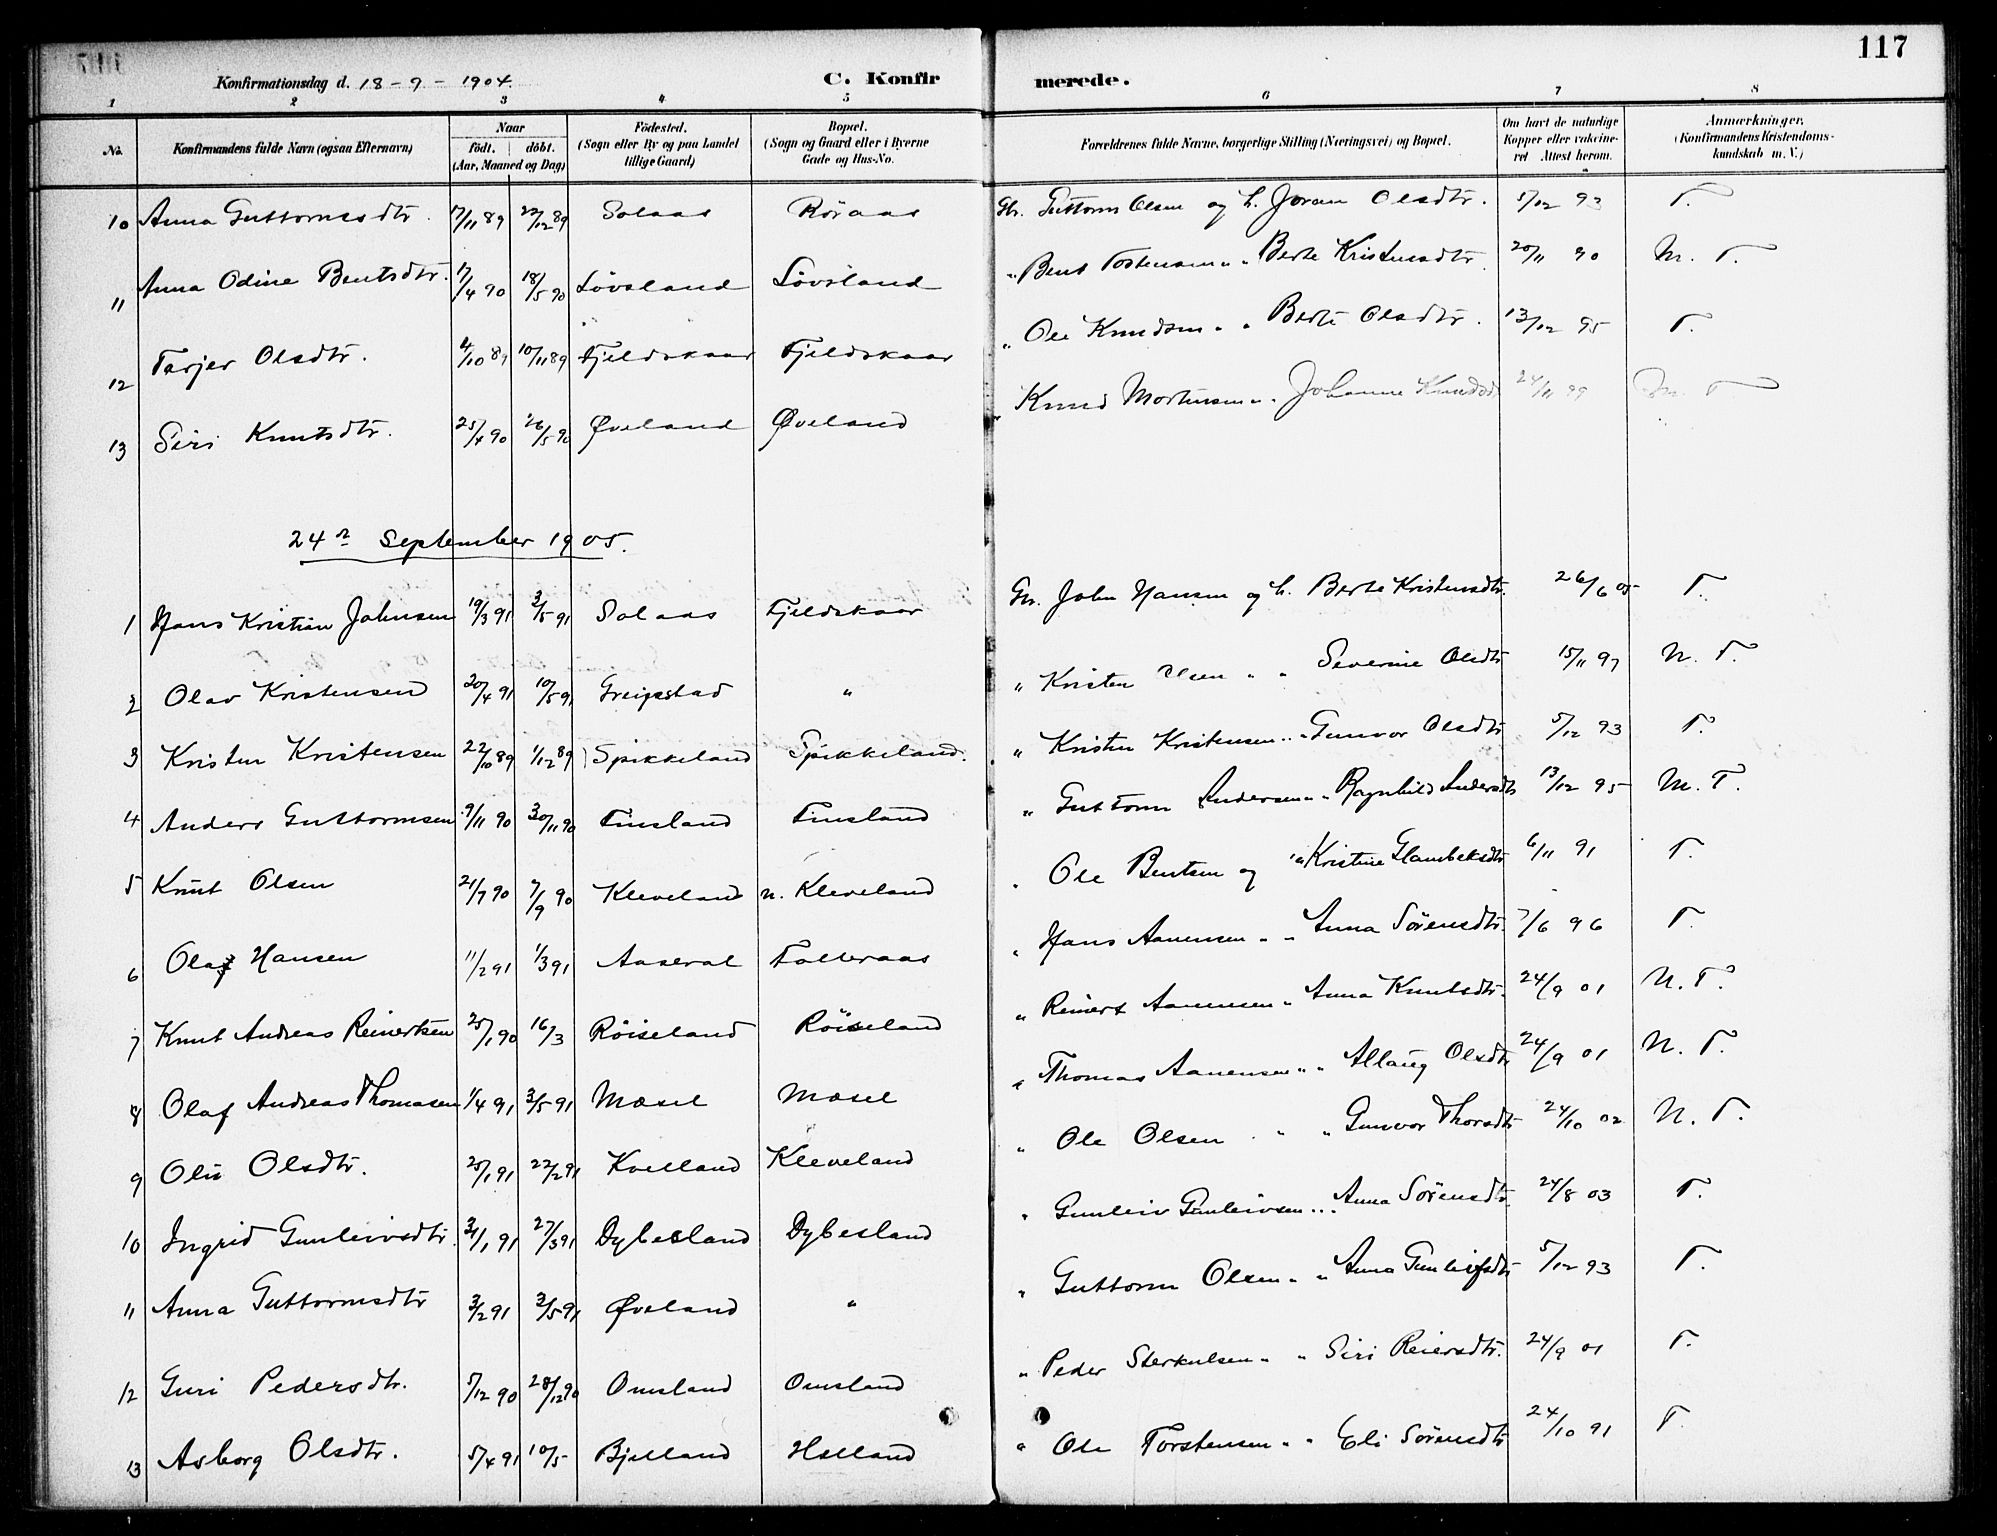 117
Konfirmationsdag d. 18 - 9 - 1904. C. Konfirmerede.
1 2 3 4 5 6 7 8
No. Konfirmandens fulde Navn (ogsaa Efternavn) Naar födt. döbt. (Aar, Maaned og Dag) Födested. (Sogn eller By og paa Landet tillige Gaard) Bopæl. (Sogn og Gaard eller i Byerne Gade og Hus-No. Forældrenes fulde Navne, borgerlige Stilling (Næringsvei) og Bopæl. Om havt de naturlige Kopper eller vakcineret Attest herom. Anmærkninger. (Konfirmandens Kristendomskundskab m. V.)
10 Anna Guttormsdtr. 17/11 89 22/12 89 Solaas Röraas Gbr. Guttorm Olsen og h. Joran Olsdtr. 5/12 93 T.
11 Anna Odine Bentsdtr. 17/4 90 18/5 90 Lövsland Lövsland " Bent Tostensen " " Berte Kristensdtr. 20/11 90 M. T.
12 Tarjer Olsdtr. 4/10 89 10/11 89 Fjeldskaar Fjeldskaar " Ole Knudsen " " Berte Olsdtr. 13/12 95 T.
13 Siri Knutsdtr. 25/4 90 26/5 90 Øveland Øveland " Knud Mortensen " " Johanne Knudsd 24/11 99 M. T
24 September 1905.
1 Hans Kristian Johnsen 19/3 91 3/5 91 Solaas Fjeldskaar Gbr. John Hansen og h. Berte Kristensdtr. 26/6 05 T.
2 Olav Kristensen 20/4 91 10/5 91 Greipstad " " Kristen Olsen " " Severine Olsdtr 15/11 97 N. T.
3 Kristen Kristensen 22/10 89 1/12 89 Spikkeland Spikkeland. " Kristen Kristensen " " Gunvor Olsdtr 5/12 93 T.
4 Anders Guttormsen 9/11 90 30/11 90 Finsland Finsland " Guttorm Andersen " " Ragnhild Andersdt 13/12 95 M. T.
5 Knut Olsen 21/7 90 7/9 90 Kleveland n. Kleveland " Ole Bentsen og " Kristine Glambeksdtr 6/11 91 T.
6 Olaf Hansen 11/2 91 1/3 91 Aaseral Folleraas " Hans Aanensen " " Anna Sörensdtr. 7/6 96 T.
7 Knut Andreas Reinertsen 25/1 90 16/3 Röiseland Röiseland " Reinert Aanensen " Anna Knutsdtr. 24/9 01 N. T.
8 Olaf Andreas Thomasen 1/4 91 3/5 91 Mæsel Mæsel " Thomas Aanensen " " Allaug Olsdtr 24/9 01 N. T.
9 Oli Olsdtr. 25/1 91 22/2 91 Kvelland Kleveland " Ole Olsen " " Gunvor Thorsdtr 24/10 02 N. T.
10 Ingrid Gunleivsdtr. 31/1 91 27/3 91 Dybesland Dybesland " Gunleiv Gunleivsen " " Anna Sörensdtr. 24/8 03 T.
11 Anna Guttormsdtr 3/2 91 3/5 91 Øveland " " Guttorm Olsen " " Anna Gunleifsdtr 5/12 93 T.
12 Guri Pedersdtr. 5/12 90 28/12 90 Omsland Omsland " Peder Sterkulsen " " Siri Reiersdtr. 24/9 01 T.
13 Asborg Olsdtr. 5/4 91 10/5 Bjelland Helland " Ole Torstensen " " Eli Sörensdtr 24/10 91 T.